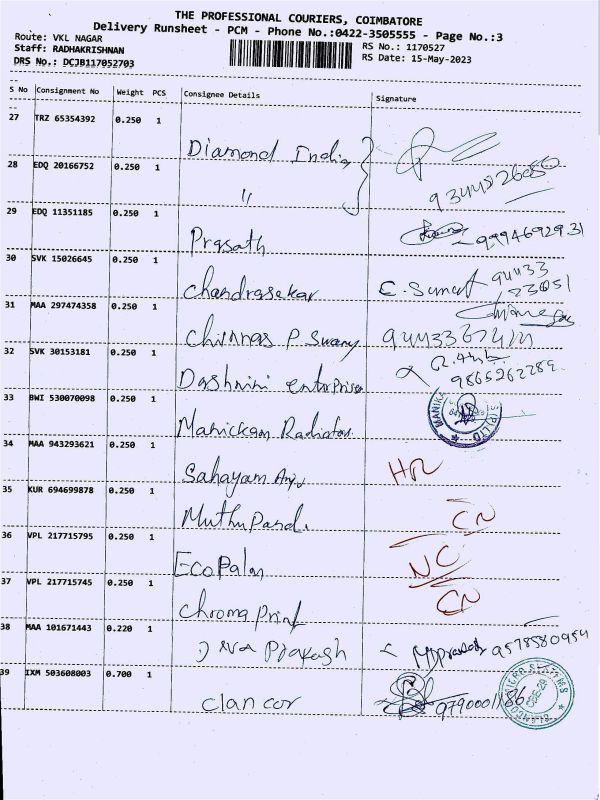 THE PROFESSIONAL COURIERS, COIMBATORE
Delivery Runsheet - PCM - Phone No.:0422-3505555 - Page No.:3
Route: VKL NAGAR
RS No.: 1170527
Staff: RADHAKRISHNAN
RS Date: 15-May-2023
DRS No.: DCJB117052703
S No Consignment No Weight PCS Consignee Details Signature
27 TRZ 65354392 0.250 1
Diamond India
28 EDQ 20166752 0.250 1
"
29 EDQ 11351185 0.250 1
Prasath
30 SVK 15026645 0.250 1
Chandrasekar
31 MAA 297474358 0.250 1
Chinnas P Swamy
32 SVK 30153181 0.250 1
Dashnini enterprises
9865262289
33 BWI 530070098 0.250 1
Manickam Radiators
34 MAA 943293621 0.250 1
Sahayam
35 KUR 694699878 0.250 1
Muthu Pandi
CN
36 VPL 217715795 0.250 1
EcoPalm
NC
37 VPL 217715745 0.250 1
Chroma print
CN
38 MAA 101671443 0.220 1
Prakash 9578580954
39 IXM 503608003 0.700 1
Clancor 9790001186